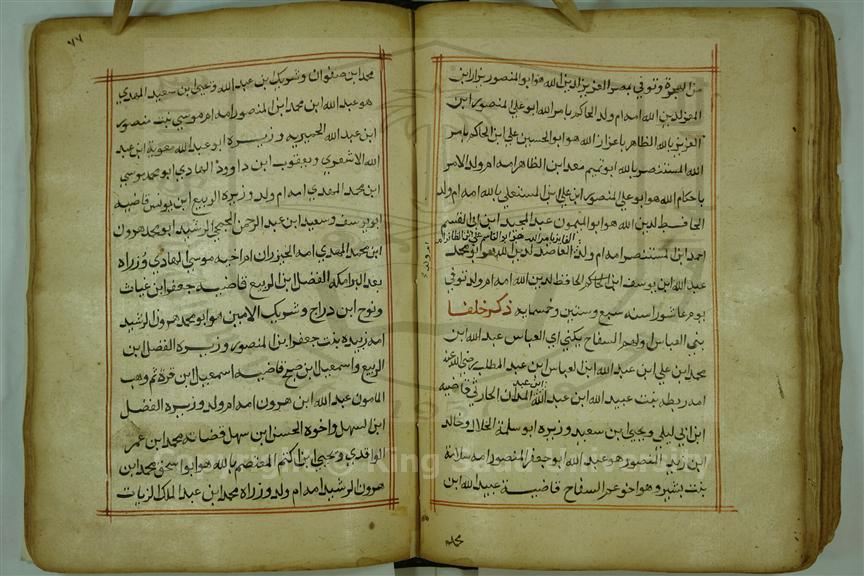 من الهجرة وتوفي بمصر العزيز لدين الله هو ابو المنصور نزار ابن
المعز لدين الله امه ام ولد الحاكم بامر الله ابو علي منصور ابن
العزيز بالله الظاهر باعزاز الله هو ابو الحسين علي ابن الحاكم بامر
الله المستنصر بالله ابو تميم معد ابن الظاهر امه ام ولد الامر
باحكام الله هو ابو علي المنصور ابن المستعلي بالله امه ام ولد
الحافظ لدين الله هو ابو الميمون عبد المجيد ابن ابي القسم
احمد ابن المستنصر امه ام ولد العاضد لدين الله هو ابو محمد
عبد الله ابن يوسف ابن الحافظ لدين الله امه ام ولد توفي
يوم عاشورا سنه سبع وستين وخمسمايه ذكر خلفا
بني العباس اولهم السفاح يكني ابي العباس عبد الله ابن
محمد ابن علي ابن عبد الله ابن العباس ابن عبد المطلب رضي الله عنه
امه ريطه بنت عبيد الله ابن عبد الله ابن عبد المدان الحارثي قاضيه
ابن ابي ليلي ويحيي ابن سعيد وزيره ابو سلمة الخلال وخالد
ابن المنصور هو عبد الله ابو جعفر المنصور امه سلامة
بنت بشير وهو اخو السفاح قاضية عبيد الله ابن
محمد
٧٧
محمد ابن صفوان وشريك بن عبد الله ويحيي ابن سعيد المهدي
هو عبد الله ابن محمد ابن المنصور امه ام موسي بنت منصور
ابن عبد الله الحميريه وزيره ابو عبد الله معوية ابن عبد
الله الاشعري ويعقوب ابن داوود الهادي ابو محمد موسي
ابن محمد المهدي امه ام ولد وزيره الربيع ابن يونس قاضيه
ابو يوسف وسعيد ابن عبد الرحمن الجمحي الرشيد ابو محمد هرون
ابن محمد المهدي امه الخيزران ام اخيه موسي الهادي وزراه
بعد البرامكه الفضل ابن الربيع قاضيه حفص ابن غياث
ونوح ابن دراج وشريك الامين هو ابو محمد هرون الرشيد
امه زبيده بنت جعفر ابن المنصور وزيره الفضل ابن
الربيع واسمعيل ابن صبيح قاضيه اسمعيل ابن
المامون عبد الله ابن هرون امه ام ولد وزيره الفضل
ابن السهل واخوه الحسن ابن سهل قضاته محمد ابن عمر
الواقدي ويحيي ابن اكثم المعتصم بالله هو ابو سحق محمد ابن
هرون الرشيد امه ام ولد وزراه محمد ابن عبد الملك الزيات
Copyright © King Saud University